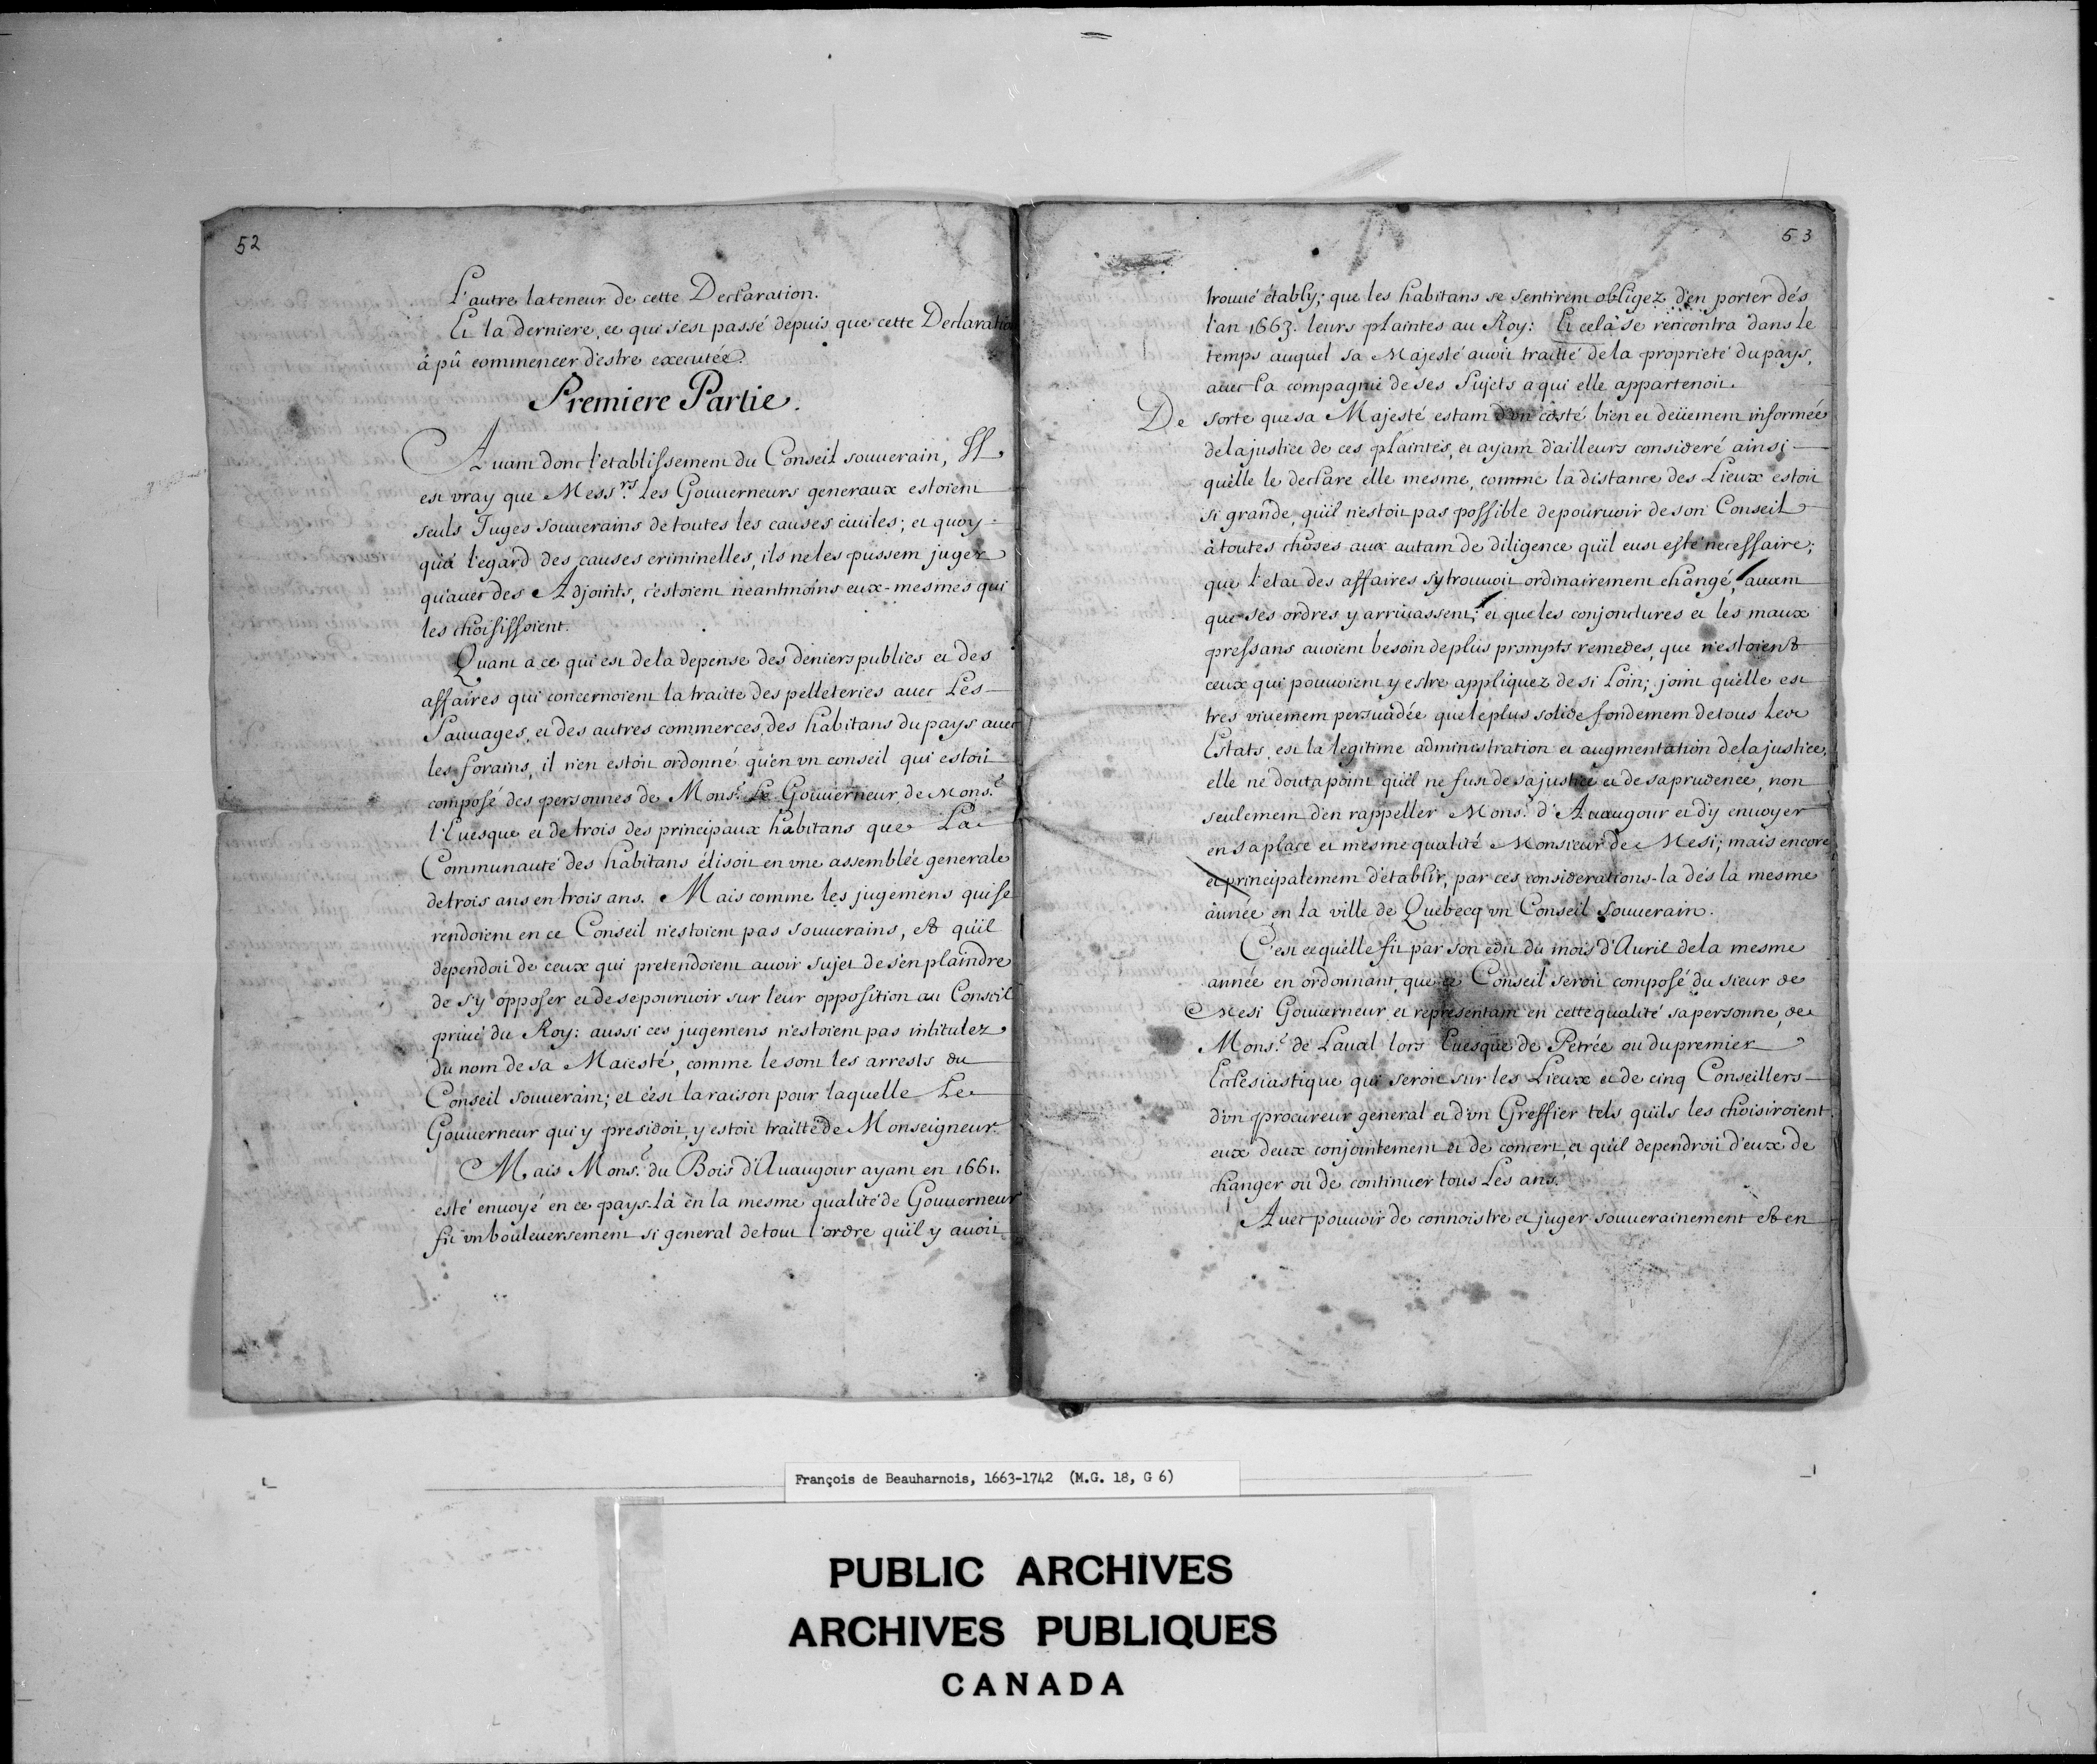 52
L'autre la teneur de cette Declaration.
Et la derniere, ce qui s'est passé depuis que cette Declaration
à pû commencer d'estre executée.
Premiere Partie.
Auant donc l'etablissement du Conseil souuerain, Il
est vray que Mess.rs les Gouuerneurs generaux estoient
seuls Juges souuerains de toutes les causes ciuiles; et quoy=
qu'à l'egard des causes criminelles, ils ne les pussent juger
qu'auec des Adjoints, c'estoient neantmoins eux-mesmes qui
les choisissoient.
Quant a ce qui est de la depense des deniers publics et des
affaires qui concernoient la traitte des pelleteries auec Les
Sauuages, et des autres commerces, des habitans du pays auec
les forains, il n'en estoit ordonné qu'en vn conseil qui estoit
composé des personnes de Mons.r Le Gouuerneur, de Mons.r
l'Euesque et de trois des principaux habitans que La
Communauté des habitans élisoit en vne assemblée generale
de trois ans en trois ans. Mais comme les jugemens qui se
rendoient en ce Conseil n'estoient pas souuerains, et qu'il
dependoit de ceux qui pretendoient auoir sujet de s'en plaindre
de s'y opposer et de se pouruoir sur leur opposition au Conseil
priué du Roy: aussi ces jugemens n'estoient pas intitulez
du nom de sa Maiesté, comme le sont les arrests du
Conseil souuerain; et c'est la raison pour laquelle Le
Gouuerneur qui y presidoit, y estoit traitté de Monseigneur.
Mais Mons.r du Bois d'Auaugour ayant en 1661.
esté enuoyé en ce pays-là en la mesme qualité de Gouuerneur
fit vn bouleuersement si general de tout l'ordre qu'il y auoit
53
trouué étably; que les habitans se sentirent obligez d'en porter dés
l'an 1663. leurs plaintes au Roy: Et celà se rencontra dans le
temps auquel sa Majesté auoit traitté de la proprieté du pays,
auec la compagnie de ses Sujets a qui elle appartenoit.
De sorte que sa Majesté estant d'vn costé bien et deüement informée
de la justice de ces plaintes, et ayant d'ailleurs consideré ainsi
qu'elle le declare elle mesme, comme la distance des Lieux estoit
si grande, qu'il n'estoit pas possible de pouruoir de son Conseil
à toutes choses aux autant de diligence qu'il eust esté necessaire;
que l'etat des affaires s'y trouuoit ordinairement changé, auant
que ses ordres y arriuassent; et que les conjonctures et les maux
pressans auoient besoin de plus prompts remedes, que n'estoient
ceux qui pouuoient y estre appliquez de si Loin; joint qu'elle est
tres viuement persuadée que le plus solide fondement de tous Les
Estats, est la legitime administration et augmentation de la justice,
elle ne douta point qu'il ne fust de sa justice et de sa prudence, non
seulement d'en rappeller Mons.r d'Auaugour et d'y enuoyer
en sa place et mesme qualité Monsieur de Mesi; mais encore
et principalement d'établir, par ces considerations-la dés la mesme
année en la ville de Quebecq vn Conseil Souuerain.
C'est ce qu'elle fit par son edit du mois d'Auril de la mesme
année en ordonnant, que ce Conseil seroit composé du sieur de
Mesi Gouuerneur et representant en cette qualité sa personne, de
Mons.r de Laual lors Euesque de Petrée ou du premier
Ecclesiastique qui seroit sur les Lieux et de cinq Conseillers
d'vn procureur general et d'vn Greffier tels qu'ils les choisiroient
eux deux conjointement et de concert, et qu'il dependroit d'eux de
changer ou de continuer tous Les ans.
Auec pouuoir de connoistre et juger souuerainement et en
François de Beauharnois, 1663-1742 (M.G. 18, G 6)
PUBLIC ARCHIVES
ARCHIVES PUBLIQUES
CANADA